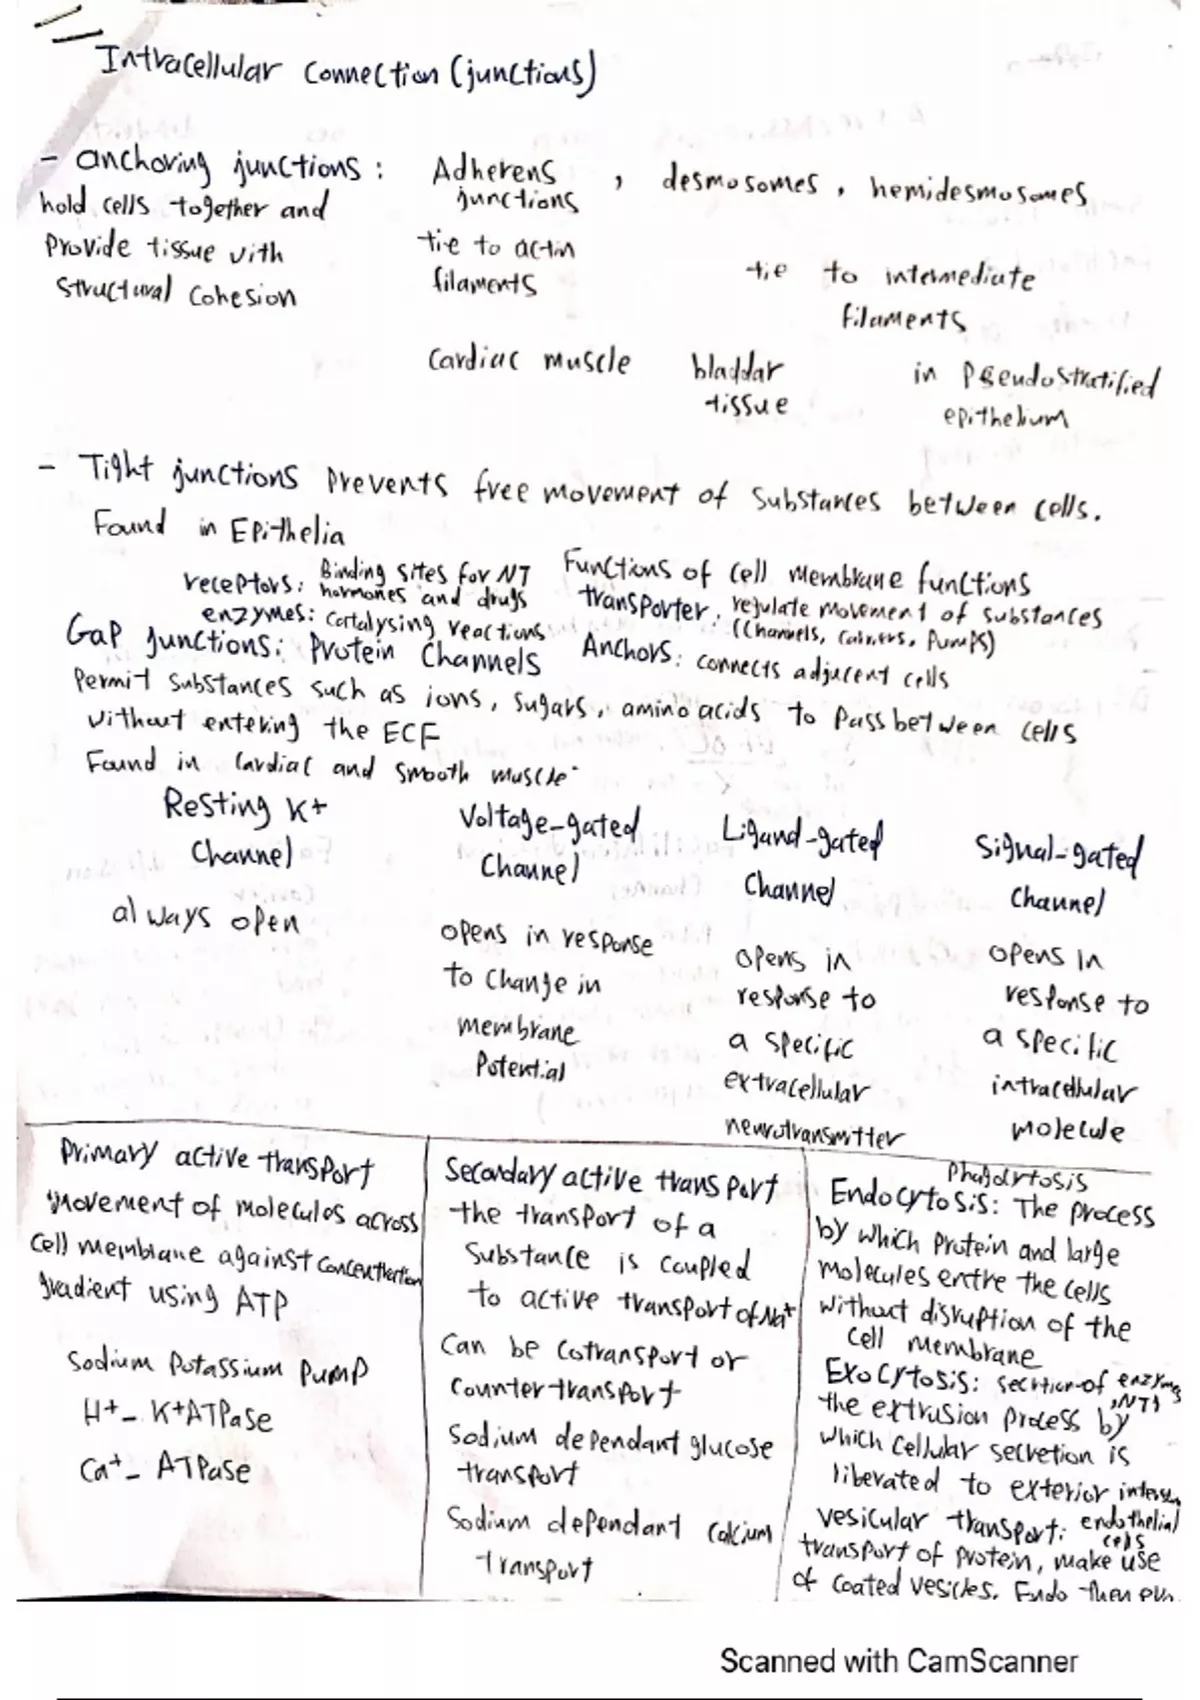 Intracellular Connection (junctions)
- anchoring junctions : Adherens junctions , desmosomes , hemidesmosomes
hold cells together and
provide tissue with
structural cohesion
tie to actin
filaments
tie to intermediate
filaments
Cardiac muscle
bladdar
tissue
in pseudostratified
epithelium
- Tight junctions prevents free movement of substances between cells.
Found in Epithelia
receptors: Binding sites for NT
hormones and drugs
enzymes: catalysing reactions
Functions of cell membrane functions
transporter: regulate movement of substances
(Channels, Carriers, Pumps)
Anchors: connects adjacent cells
Gap junctions: Protein Channels
Permit substances such as ions, sugars, amino acids to pass between cells
without entering the ECF
Found in Cardiac and smooth muscle
Resting K+
Channel
always open
Voltage-gated
Channel
opens in response
to change in
membrane
Potential
Ligand-gated
Channel
opens in
response to
a specific
extracellular
neurotransmitter
Signal-gated
Channel
opens in
response to
a specific
intracellular
molecule
Primary active transport
Movement of molecules across
Cell membrane against concentration
gradient using ATP
Sodium Potassium Pump
H+- K+ATPase
Ca+- ATPase
Secondary active transport
the transport of a
substance is coupled
to active transport of Na+
Can be cotransport or
counter transport
Sodium dependant glucose
transport
Sodium dependant calcium
transport
Phagocytosis
Endocytosis: The process
by which protein and large
molecules entre the cells
without disruption of the
cell membrane
Exocytosis: of enzyme
, NTs
the extrusion process by
which cellular secretion is
liberated to exterior
vesicular transport: endothelial
cells
transport of protein, make use
of coated vesicles. Endo then
Scanned with CamScanner